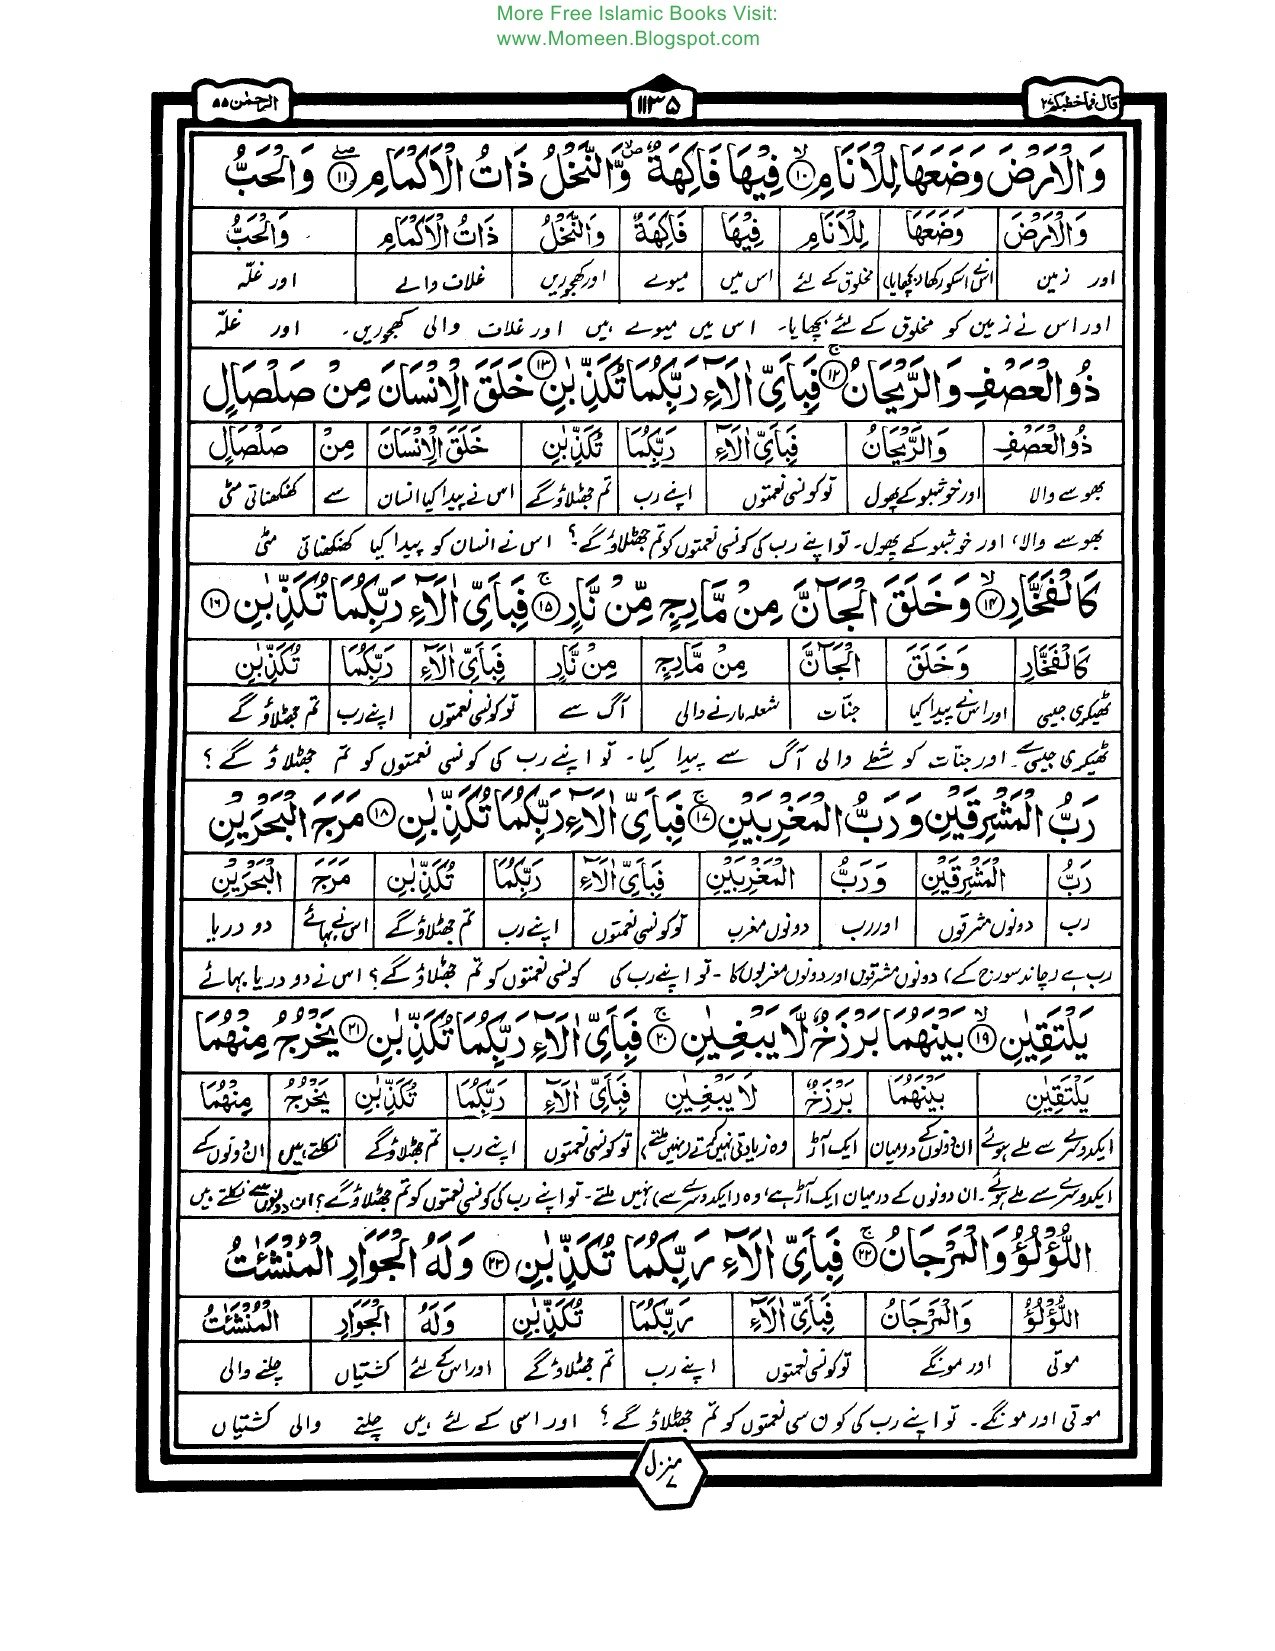 More Free Islamic Books Visit:
www.Momeen.Blogspot.com
قال فما خطبکم ۲۷
۱۱۳۵
الرحمٰن ۵۵
وَالْاَرْضَ وَضَعَهَا لِلْاَنَامِ ۙ﴿۱۰﴾ فِيْهَا فَاكِهَةٌ ۪ۙ وَّالنَّخْلُ ذَاتُ الْاَكْمَامِ ۖ﴿۱۱﴾ وَالْحَبُّ
وَالْاَرْضَ وَضَعَهَا لِلْاَنَامِ فِيْهَا فَاكِهَةٌ وَالنَّخْلُ ذَاتُ الْاَكْمَامِ وَالْحَبُّ
اور زمین اس نے اسکو رکھا (بچھایا) مخلوق کے لئے اس میں میوے اور کھجوریں غلاف والے اور غلّہ
اور اس نے زمین کو مخلوق کے لئے بچھایا۔ اس میں میوے ہیں اور غلاف والی کھجوریں۔ اور غلّہ
ذُو الْعَصْفِ وَالرَّيْحَانُ ۚ﴿۱۲﴾ فَبِاَيِّ اٰلَآءِ رَبِّكُمَا تُكَذِّبٰنِ ﴿۱۳﴾ خَلَقَ الْاِنْسَانَ مِنْ صَلْصَالٍ
ذُو الْعَصْفِ وَالرَّيْحَانُ فَبِاَيِّ اٰلَآءِ رَبِّكُمَا تُكَذِّبٰنِ خَلَقَ الْاِنْسَانَ مِنْ صَلْصَالٍ
بھوسے والا اور خوشبو کے پھول تو کونسی نعمتوں اپنے رب تم جھٹلاؤ گے اس نے پیدا کیا انسان سے کھنکھناتی مٹی
بھوسے والا، اور خوشبو کے پھول۔ تو اپنے رب کی کونسی نعمتوں کو تم جھٹلاؤ گے؟ اس نے انسان کو پیدا کیا کھنکھناتی مٹی
كَالْفَخَّارِ ۙ﴿۱۴﴾ وَخَلَقَ الْجَآنَّ مِنْ مَّارِجٍ مِّنْ نَّارٍ ۚ﴿۱۵﴾ فَبِاَيِّ اٰلَآءِ رَبِّكُمَا تُكَذِّبٰنِ ﴿۱۶﴾
كَالْفَخَّارِ وَخَلَقَ الْجَآنَّ مِنْ مَّارِجٍ مِنْ نَّارٍ فَبِاَيِّ اٰلَآءِ رَبِّكُمَا تُكَذِّبٰنِ
ٹھیکری جیسی اور اس نے پیدا کیا جنّات شعلہ مارنے والی آگ سے تو کونسی نعمتوں اپنے رب تم جھٹلاؤ گے
ٹھیکری جیسی سے۔ اور جنّات کو شعلے والی آگ سے پیدا کیا۔ تو اپنے رب کی کونسی نعمتوں کو تم جھٹلاؤ گے؟
رَبُّ الْمَشْرِقَيْنِ وَرَبُّ الْمَغْرِبَيْنِ ۚ﴿۱۷﴾ فَبِاَيِّ اٰلَآءِ رَبِّكُمَا تُكَذِّبٰنِ ﴿۱۸﴾ مَرَجَ الْبَحْرَيْنِ
رَبُّ الْمَشْرِقَيْنِ وَرَبُّ الْمَغْرِبَيْنِ فَبِاَيِّ اٰلَآءِ رَبِّكُمَا تُكَذِّبٰنِ مَرَجَ الْبَحْرَيْنِ
رب دونوں مشرقوں اور رب دونوں مغرب تو کونسی نعمتوں اپنے رب تم جھٹلاؤ گے اس نے بہائے دو دریا
رب ہے (چاند سورج کے) دونوں مشرقوں اور دونوں مغربوں کا۔ تو اپنے رب کی کونسی نعمتوں کو تم جھٹلاؤ گے؟ اس نے دو دریا بہائے
يَلْتَقِيٰنِ ۙ﴿۱۹﴾ بَيْنَهُمَا بَرْزَخٌ لَّا يَبْغِيٰنِ ۚ﴿۲۰﴾ فَبِاَيِّ اٰلَآءِ رَبِّكُمَا تُكَذِّبٰنِ ﴿۲۱﴾ يَخْرُجُ مِنْهُمَا
يَلْتَقِيٰنِ بَيْنَهُمَا بَرْزَخٌ لَا يَبْغِيٰنِ فَبِاَيِّ اٰلَآءِ رَبِّكُمَا تُكَذِّبٰنِ يَخْرُجُ مِنْهُمَا
ایک دوسرے سے ملے ہوئے ان دونوں کے درمیان ایک آڑ وہ زیادتی نہیں کرتے (نہیں ملتے) تو کونسی نعمتوں اپنے رب تم جھٹلاؤ گے نکلتے ہیں ان دونوں کے
ایک دوسرے سے ملے ہوئے۔ ان دونوں کے درمیان ایک آڑ ہے، وہ (ایک دوسرے سے) نہیں ملتے۔ تو اپنے رب کی کونسی نعمتوں کو تم جھٹلاؤ گے؟ ان دونوں سے نکلتے ہیں
اللُّؤْلُؤُ وَالْمَرْجَانُ ۚ﴿۲۲﴾ فَبِاَيِّ اٰلَآءِ رَبِّكُمَا تُكَذِّبٰنِ ﴿۲۳﴾ وَلَهُ الْجَوَارِ الْمُنْشَئٰتُ
اللُّؤْلُؤُ وَالْمَرْجَانُ فَبِاَيِّ اٰلَآءِ رَبِّكُمَا تُكَذِّبٰنِ وَلَهُ الْجَوَارِ الْمُنْشَئٰتُ
موتی اور مونگے تو کونسی نعمتوں اپنے رب تم جھٹلاؤ گے اور اس کے لئے کشتیاں چلنے والی
موتی اور مونگے۔ تو اپنے رب کی کون سی نعمتوں کو تم جھٹلاؤ گے؟ اور اسی کے لئے ہیں چلنے والی کشتیاں
منزل ۷